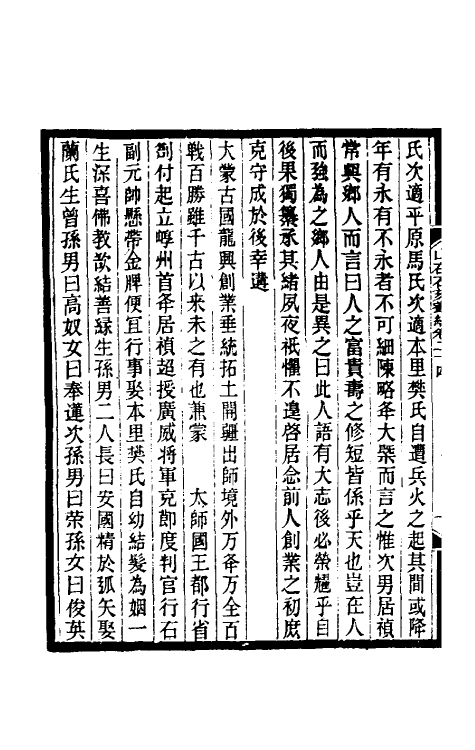 氏次適平原馬氏次適本里樊氏自遭兵火之起其間或降
年有永有不永者不可細陳略夆大槩而言之惟次男居禎
常與鄉人而言曰人之富貴壽之修短皆係乎天也豈在人
而強為之鄉人由是異之曰此人語有大志後必榮耀乎自
後果獨纂承其緒夙夜祇懼不遑啓居念前人創業之初庶
克守成於後幸遘
大蒙古國龍興創業垂統拓土開疆出師境外万夆万全百
戰百勝雖千古以來未之有也兼蒙　太師國王都行省
劄付起立崞州首夆居禎超授廣威將軍克節度判官行石
副元帥懸帶金牌便宜行事娶本里樊氏自幼結髮為姻一
生深喜佛教歆結善緣生孫男二人長曰安國精於弧矢娶
蘭氏生曾孫男曰高奴女曰奉蓮次孫男曰荣孫女曰俊英